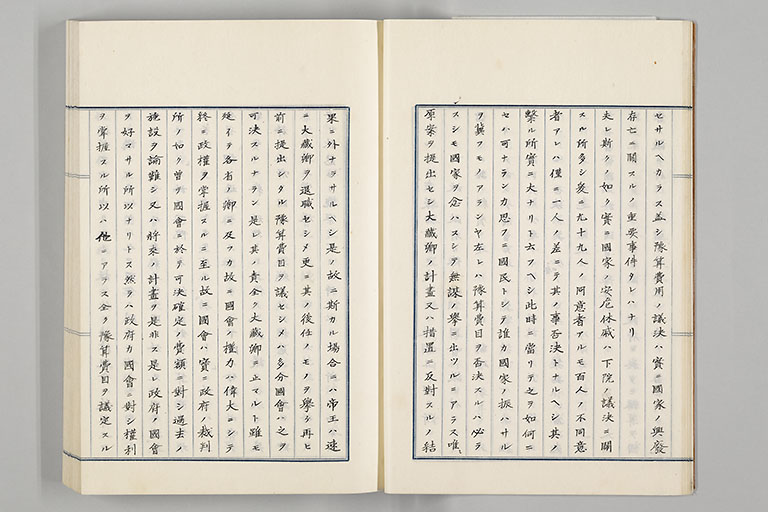 セサルヘカラス蓋シ豫算費用ノ議決ハ實ニ國家ノ興廢
存亡ニ關スルノ重要事件タレハナリ
夫レ斯クノ如ク實ニ國家ノ安危休戚ハ下院ノ議決ニ關
スル所多シ爰ニ九十九人ノ同意者アルモ百人ノ不同意
者アレハ僅ニ一人ノ差ニテ其ノ事否決トナルヘシ其ノ
繫ル所實ニ大ナリト云フヘシ此時ニ當リテ之ヲ如何ニ
セハ可ナランカ思フニ國民トシテ誰カ國家ノ振ハサル
ヲ冀フモノアランヤ左レハ豫算費目ヲ否決スルハ必ラ
スシモ國家ヲ念ハスシテ無謀ノ擧ニ出ツルニアラス唯
原案ヲ提出セシ大藏卿ノ計畫又ハ措置ニ反對スルノ結
果ニ外ナラサルヘシ是ノ故ニ斯カル場合ニハ帝王ハ速
ニ大藏卿ヲ退職セシメ更ニ其ノ後任ノモノヲ擧ケ再ヒ
前ニ提出シタル豫算費目ヲ議セシメハ多分國會ハ之ヲ
可決スルナラン是レ其ノ責全ク大藏卿ニ止マルト雖モ
延イテ各省ノ卿ニ及フカ故ニ國會ノ權力ハ偉大ニシテ
終ニ政權ヲ掌握スルニ至ル故ニ國會ハ實ニ政府ノ裁判
所ノ如ク曾テ國會ニ於テ可決確定ノ費額ニ對シ過去ノ
施設ヲ論難シ又ハ將來ノ計畫ヲ是非ス是レ政府ノ國會
ヲ好マサル所以ナリトス然ラハ政府カ國會ニ對シ權利
ヲ掌握スル所以ハ他ニアラス全ク豫算費目ヲ議定スル